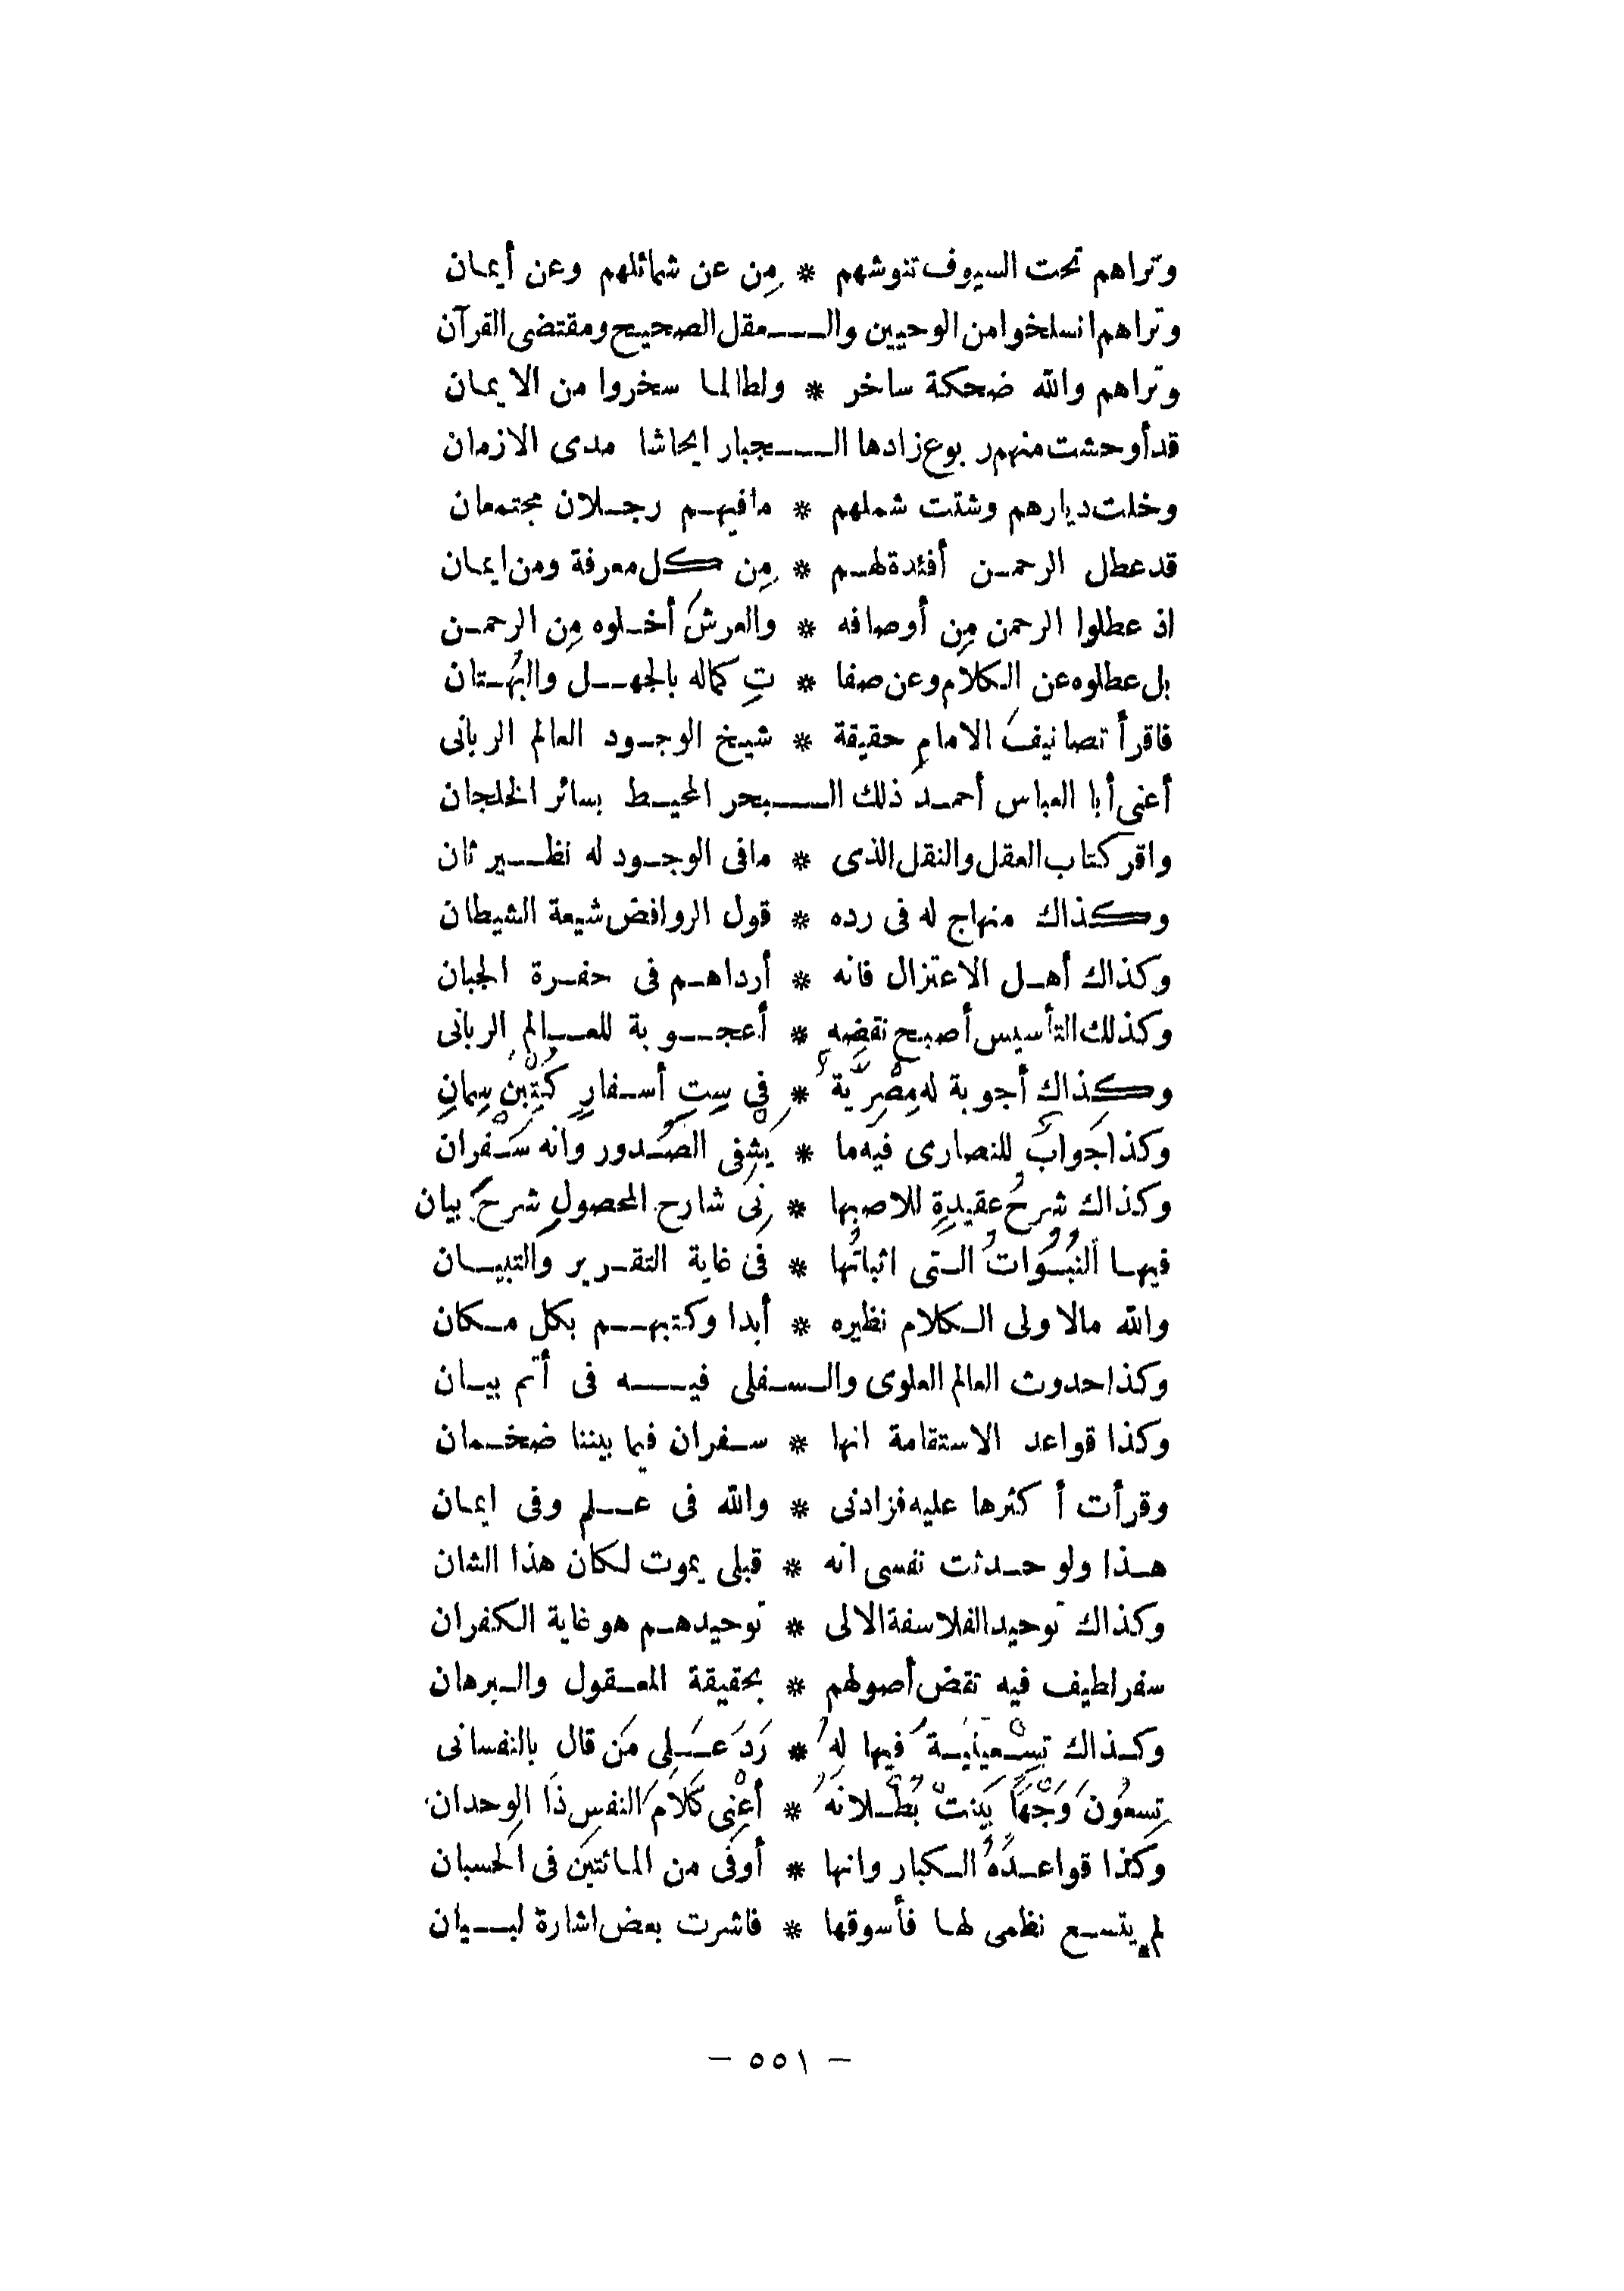 وتراهم تحت السيوف تنوشهم * مِن عن شمائلهم وعن أيمان
وتراهم انسلخوا من الوحيين والـــعقل الصحيح ومقتضى القرآن
وتراهم والله ضحكة ساخر * ولطالما سخروا من الايمان
قد أوحشت منهم ربوع زادها الـــجبار ايحاشا مدى الازمان
وخلت ديارهم وشتت شملهم * مافيهم رجلان مجتمعان
قد عطل الرحمن أفئدة لهم * مِن كل معرفة ومن ايمان
اذ عطلوا الرحمن مِن أوصافه * والعرشَ أخلوه مِن الرحمن
بل عطلوه عن الكلام وعن صفا * تِ كماله بالجهل والبُهتان
فاقرأ تصانيفَ الامامِ حقيقة * شيخ الوجود العالم الربانى
أعنى أبا العباس أحمد ذلك الـــبحر المحيط بسائر الخلجان
واقر كتاب العقل والنقل الذى * مافى الوجود له نظير ثان
وكذاك منهاج له فى رده * قول الروافض شيعة الشيطان
وكذاك أهل الاعتزال فانه * أرداهم فى حفرة الجبان
وكذلك التأسيس أصبح نقضه * أعجوبة للعالِم الربانى
وكذاك أجوبة له مِصْرِيَّة * فِي سِتِ أسفارٍ كُتِبْنَ سِمانِ
وكذا جَوابٌ للنصارى فيه ما * يَشْفِى الصُّدور وانه سَفْران
وكذاك شرحُ عقيدةِ للاصبها * نِى شارح المحصولِ شرحَ بيان
فيها النُّبُوَّاتُ التى اثباتُها * فى غاية التقرير والتبيان
والله مالاولى الكلام نظيره * أبدا وكتبهم بكل مكان
وكذا حدوث العالم العلوى والـسفلى فيه فى أتم بيان
وكذا قواعد الاستقامة انها * سفران فيما بيننا ضخمان
وقرأت أكثرها عليه فزادنى * والله فى علم وفى ايمان
هذا ولو حدثت نفسى انه * قبلى يموت لكان هذا الشان
وكذاك توحيد الفلاسفة الالى * توحيدهم هو غاية الكفران
سفر لطيف فيه نقض أصولهم * بحقيقة المعقول والبرهان
وكذاك تِسْعِينِيَّةٌ فيها لهُ * رَدَّ عَلى مَن قال بالنفسانى
تِسعُونَ وَجْهًا بَيَّنتْ بُطْلانَهُ * أعْنِى كَلامَ النفسِ ذَا الوحدان
وكذا قواعدُهُ الكبار وانها * أوفَى من المائتين فى الحسبان
لم يتسع نظمى لها فأسوقها * فاشرت بعض اشارة لبيان
— ٥٥١ —